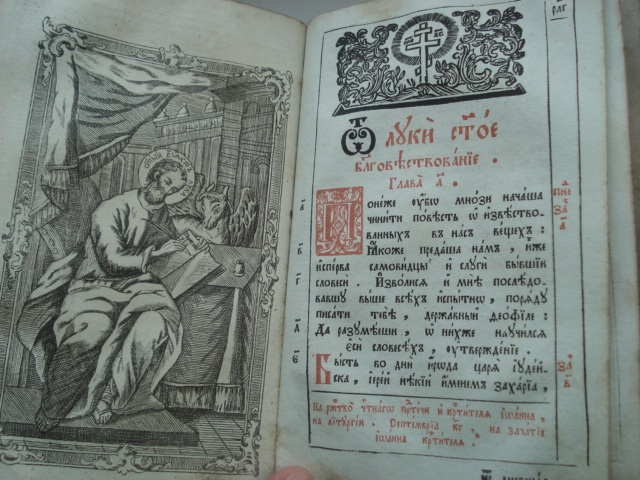 рлг
Ѿ лꙋки́ ст҃о́е
бл҃говѣствова́нїе .
Глава̀ а҃ .
Понеже ᲂу҆́бѡ мно́зи нача́ша
чини́ти по́вѣсть ѡ҆ и҆звѣ́ство-
ванныхъ въ на́съ ве́щехъ :
Ꙗ҆́коже преда́ша на́мъ , и҆̀же
и҆спе́рва самови́дцы и҆ слꙋги̑ бы́вшїи
словесѐ . И҆зво́лисѧ и҆ мнѣ̀ послѣ́до-
вавшꙋ вы́ше всѣ̑хъ и҆спы́тнѡ , порѧ́дꙋ
писа́ти тебѣ̀ , держа́вный ѳео́филе :
Да разꙋмѣ́еши , ѡ҆ ни́хже наꙋчи́лсѧ
є҆сѝ словесѣ́хъ , ᲂу҆твержде́нїе .
Бы́сть во дни̑ и҆́рѡда царѧ̀ і҆ꙋде́й-
ска , і҆ере́й нѣ́кїй и҆́менемъ заха́рїа ,
На ржⷭ҇тво̀ чⷭ҇тна́гѡ прⷣте́чи и҆ крⷭ҇ти́телѧ і҆ѡа́нна ,
на лїтꙋргі́и . Септе́мврїа кг҃ , на зача́тїе
і҆ѡа́нна крⷭ҇ти́телѧ .
за҃ч
а҃
в҃
г҃
д҃
є҃
за҃ч
в҃